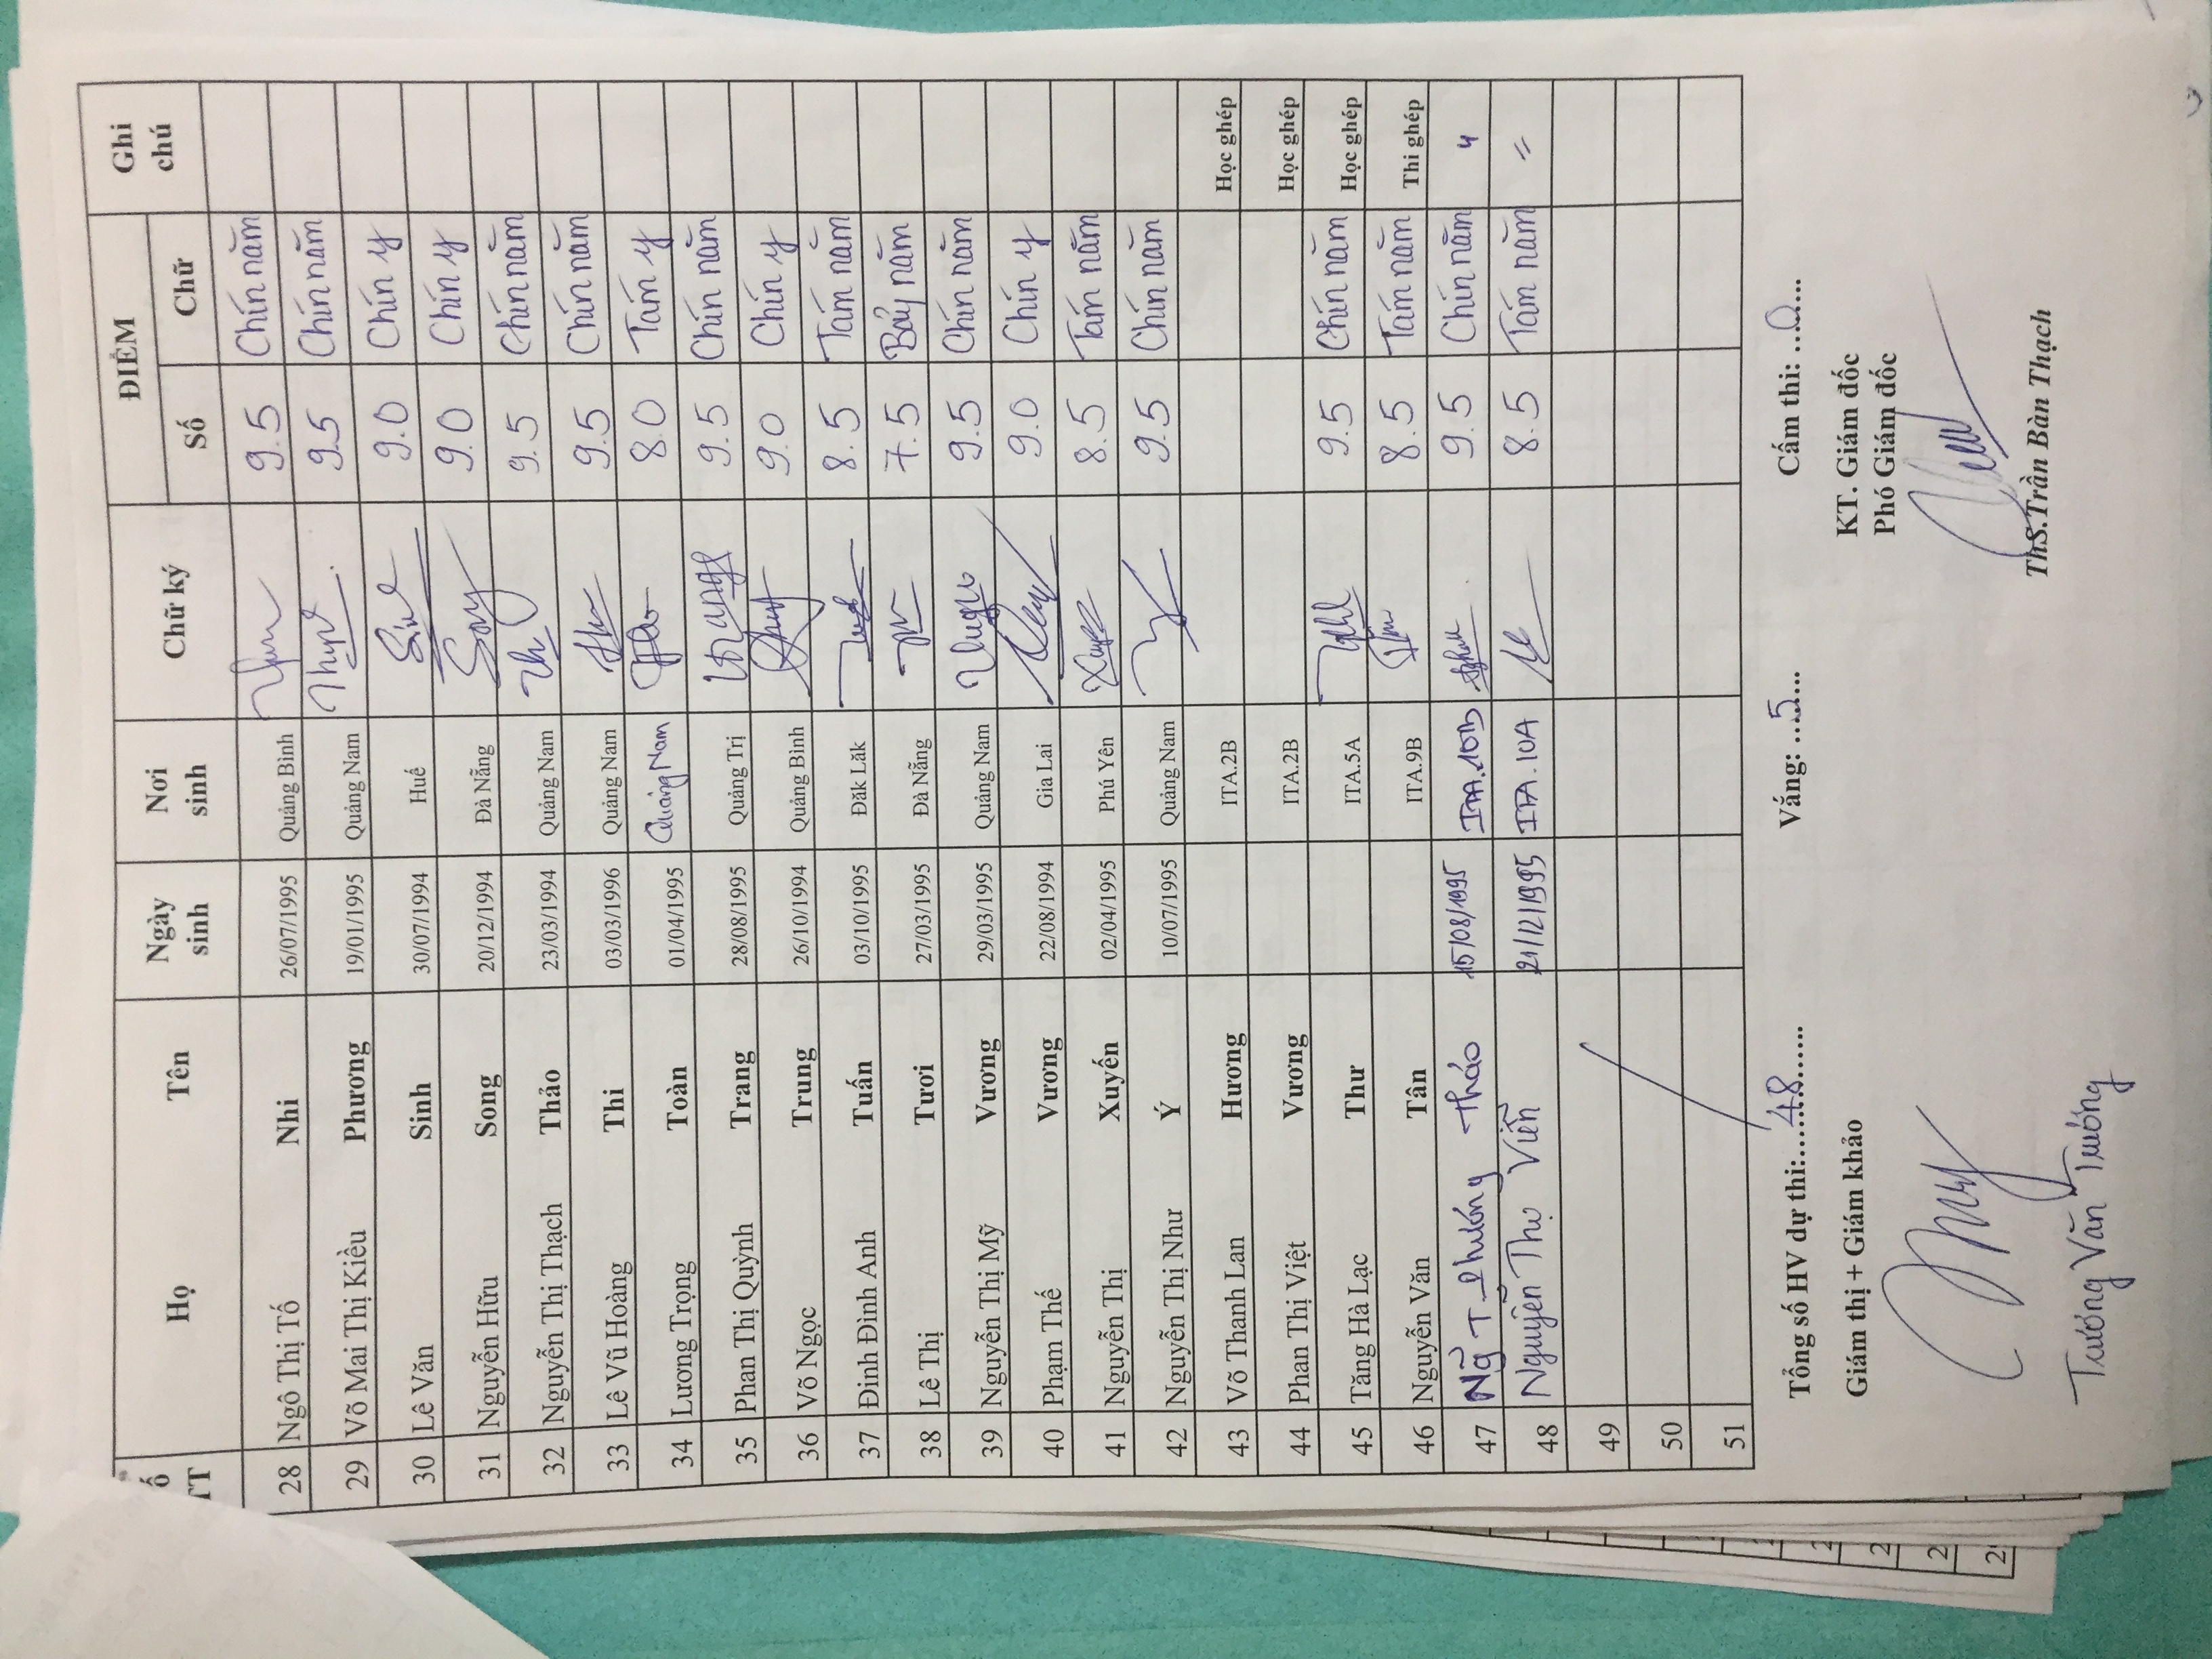 Số TT Họ Tên Ngày sinh Nơi sinh Chữ ký ĐIỂM Ghi chú
Số Chữ
28 Ngô Thị Tố Nhi 26/07/1995 Quảng Bình 9.5 Chín năm
29 Võ Mai Thị Kiều Phương 19/01/1995 Quảng Nam 9.5 Chín năm
30 Lê Văn Sinh 30/07/1994 Huế Sinh 9.0 Chín y
31 Nguyễn Hữu Song 20/12/1994 Đà Nẵng Song 9.0 Chín y
32 Nguyễn Thị Thạch Thảo 23/03/1994 Quảng Nam Th 9.5 Chín năm
33 Lê Vũ Hoàng Thi 03/03/1996 Quảng Nam 9.5 Chín năm
34 Lương Trọng Toàn 01/04/1995 Quảng Nam 8.0 Tám y
35 Phan Thị Quỳnh Trang 28/08/1995 Quảng Trị trang 9.5 Chín năm
36 Võ Ngọc Trung 26/10/1994 Quảng Bình 9.0 Chín y
37 Đinh Đinh Anh Tuấn 03/10/1995 Đăk Lăk 8.5 Tám năm
38 Lê Thị Tươi 27/03/1995 Đà Nẵng 7.5 Bảy năm
39 Nguyễn Thị Mỹ Vương 29/03/1995 Quảng Nam 9.5 Chín năm
40 Phạm Thế Vương 22/08/1994 Gia Lai 9.0 Chín y
41 Nguyễn Thị Xuyến 02/04/1995 Phú Yên 8.5 Tám năm
42 Nguyễn Thị Như Ý 10/07/1995 Quảng Nam 9.5 Chín năm
43 Võ Thanh Lan Hương ITA.2B Học ghép
44 Phan Thị Việt Vương ITA.2B Học ghép
45 Tăng Hà Lạc Thư ITA.5A 9.5 Chín năm Học ghép
46 Nguyễn Văn Tân ITA.9B 8.5 Tám năm Thi ghép
47 Ng̃ T Phương Thảo 15/08/1995 ITA.10B 9.5 Chín năm "
48 Nguyễn Thọ Viễn 21/12/1995 ITA.10A 8.5 Tám năm "
49
50
51
Tổng số HV dự thi:.....48....... Vắng: ...5.... Cấm thi: ...0....
Giám thị + Giám khảo KT. Giám đốc
Phó Giám đốc
Trương Văn Trương ThS.Trần Bàn Thạch